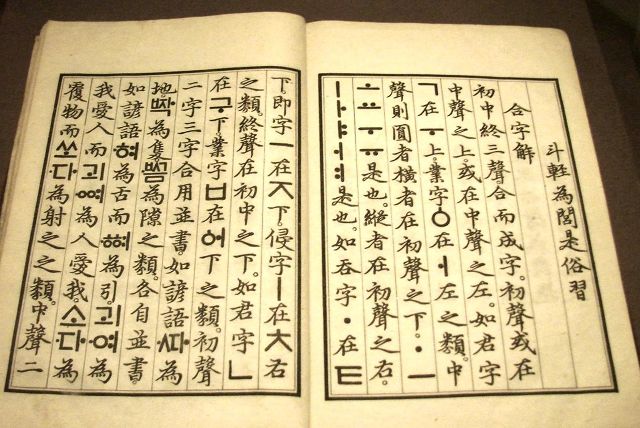 斗輕為閭是俗習
合字解
初中終三聲合而成字。初聲或在
中聲之上。或在中聲之左。如君字
ㄱ在ㅜ上。業字ㆁ在ㅓ左之類。中
聲則圓者橫者在初聲之下。ㆍㅡ
ㅗㅛㅜㅠ是也。縱者在初聲之右。
ㅣㅏㅑㅓㅕ是也。如吞字ㆍ在ㅌ
下。即字ㅡ在ㅈ下。侵字ㅣ在ㅊ右
之類。終聲在初中之下。如君字ㄴ
在구下。業字ㅂ在ᅌᅥ下之類。初聲
二字三字合用並書。如諺語ᄯᅡ為
地。ᄧᅡᆨ為隻。ᄢᅳᆷ為隙之類。各自並書
如諺語혀為舌而ᅘᅧ為引。괴여為
我愛人而괴ᅇᅧ為人愛我。소다為
覆物而쏘다為射之之類。中聲二